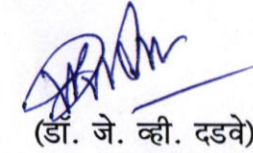 (डॉ. जे. व्ही. दडवे)